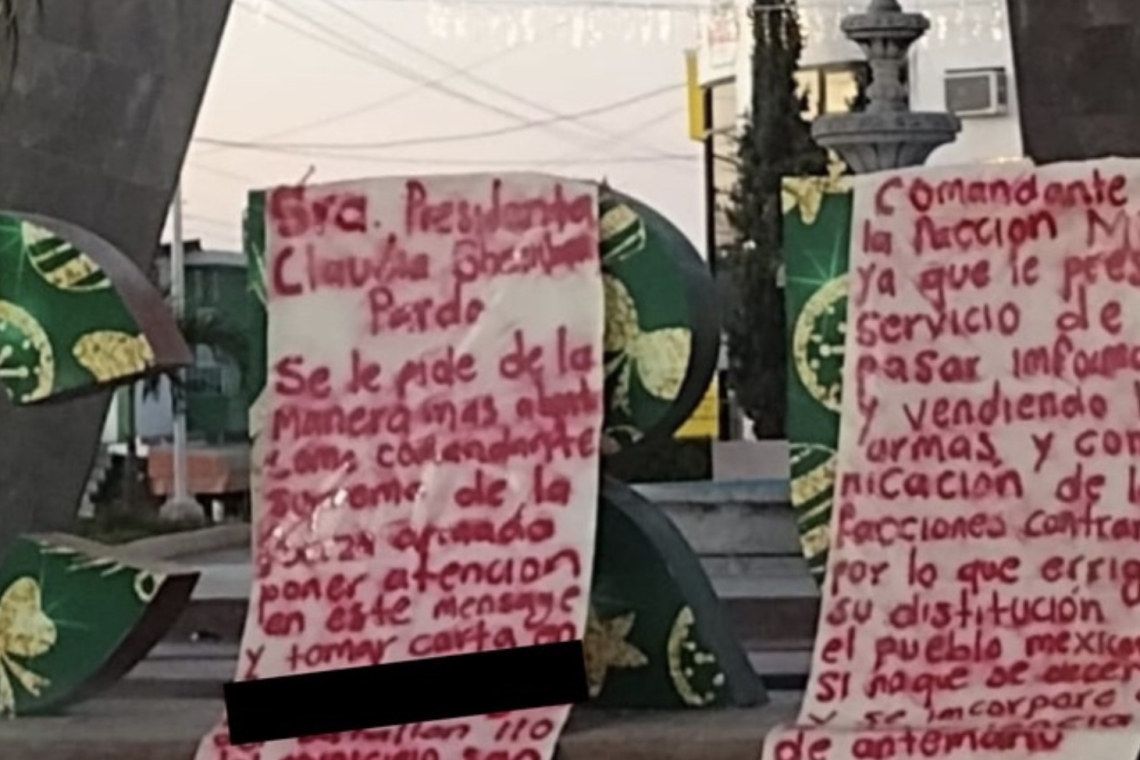 Sra. Presidenta
Claudia Sheinbaum
Pardo
Se le pide de la
Manera mas
como comandante
suprema de la
armado
poner atencion
en este mensage
y tomar carta en
110
Comandante
la faccion M
ya que le pres
servicio de
pasar informa
y vendiendo
armas, y com
nicacion de l
facciones contra
por lo que
su distitución
el pueblo mexic
si haque se
y se incorpara
de antemano